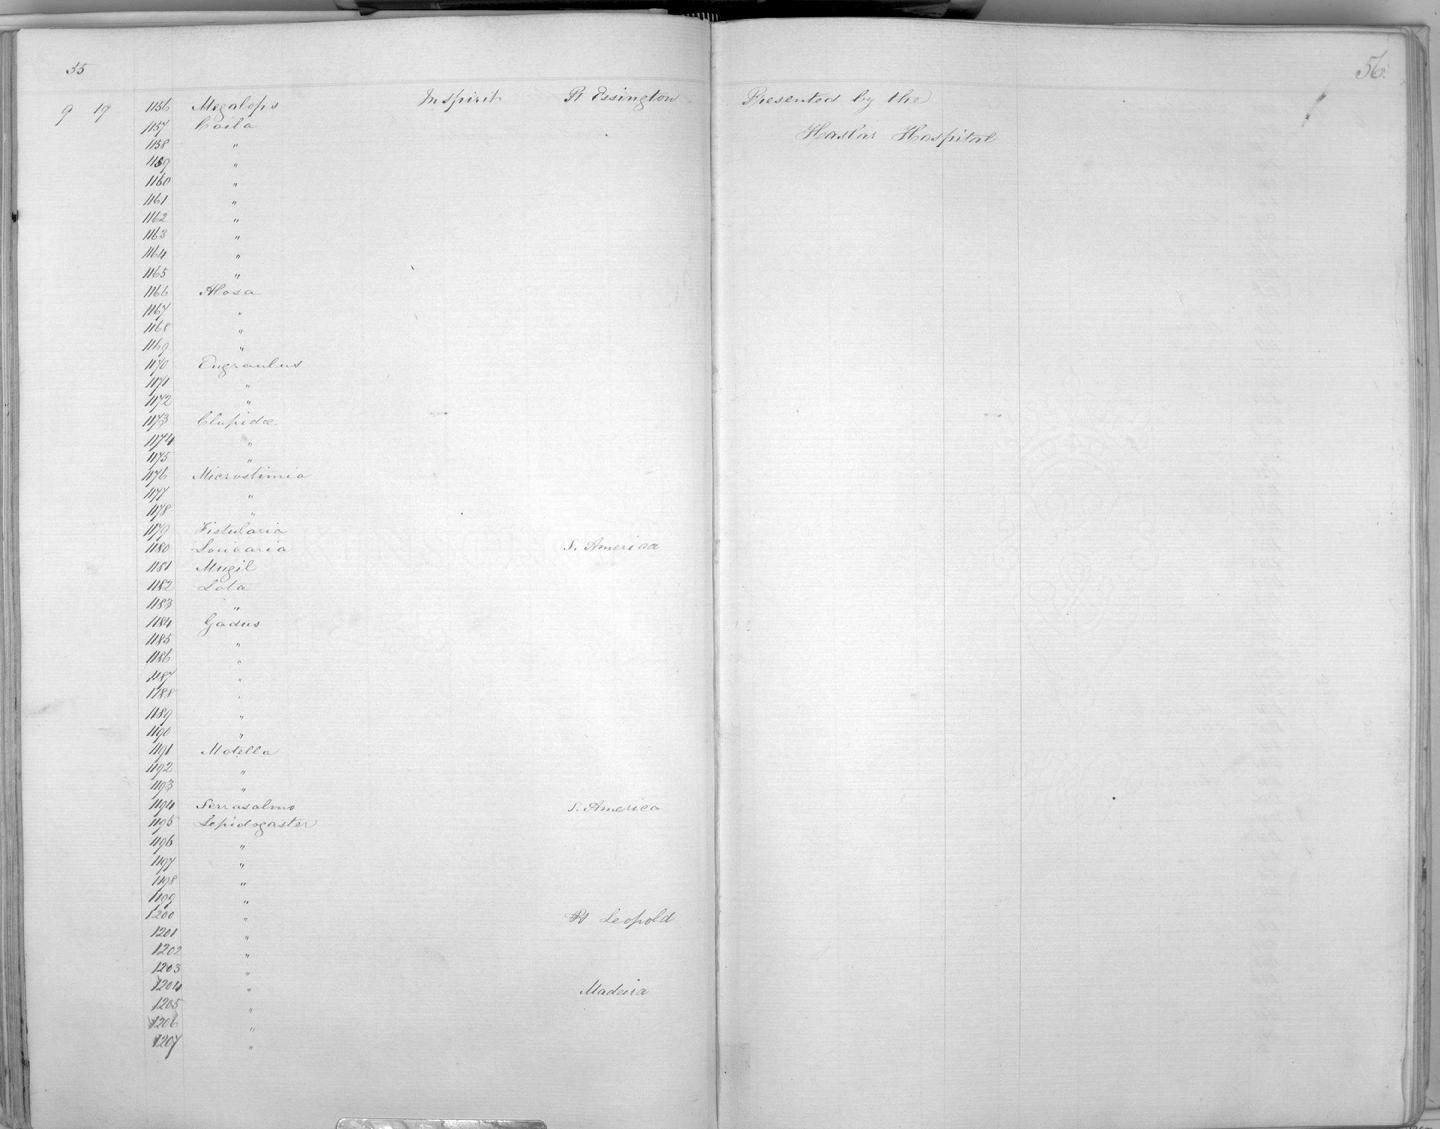 55
56
9 19 1156 Megalops In spirit Pt Essington Presented by the
1157 Coila Haslar Hospital
1158 "
1159 "
1160 "
1161 "
1162 "
1163 "
1164 "
1165 "
1166 Alosa
1167 "
1168 "
1169 "
1170 Engraulus
1171 "
1172 "
1173 Clupidæ
1174 "
1175 "
1176 Microstimia
1177 "
1178 "
1179 Fistularia
1180 Loricaria S. America
1181 Mugil
1182 Lota
1183 "
1184 Gadus
1185 "
1186 "
1187 "
1188 "
1189 "
1190 "
1191 Motella
1192 "
1193 "
1194 Serrasalmo S. America
1195 Lepidogaster
1196 "
1197 "
1198 "
1199 "
1200 " Pt Leopold
1201 "
1202 "
1203 "
1204 " Madeira
1205 "
1206 "
1207 "